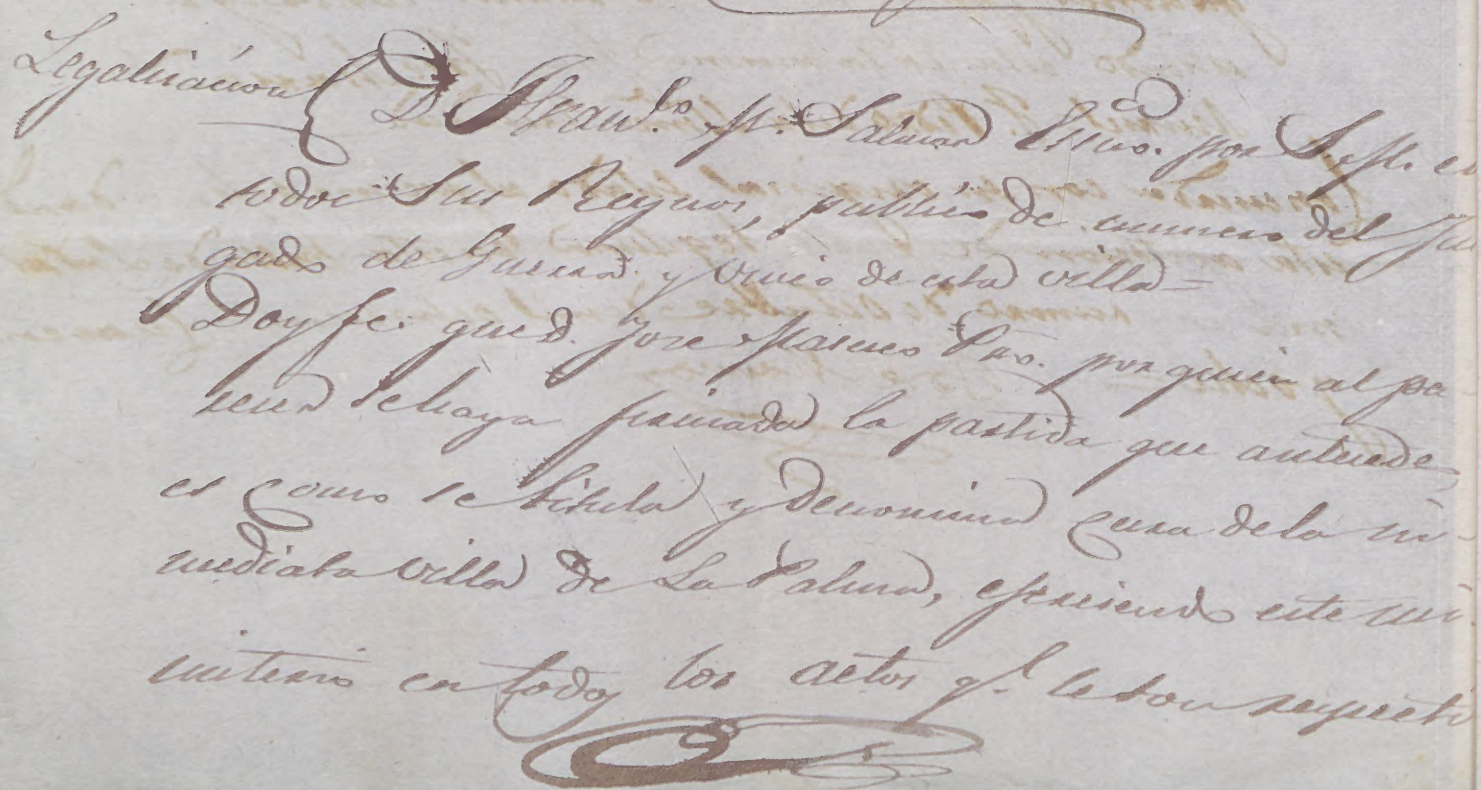 Legalizacion D. Fran.co M. Salman Essno. por S. M. en
todos Sus Reynos, publico de numero del Juz
gado de Guerra y vecino de esta villa=
Doy fe que D. Jose Marcos Pro. por quien al pa
recer se haya firmada la partida que antecede,
es como se titula y denomina Cura de la in-
mediata villa de La Palma, ejerciendo este mi-
nisterio en todos los actos q.e le son respecti